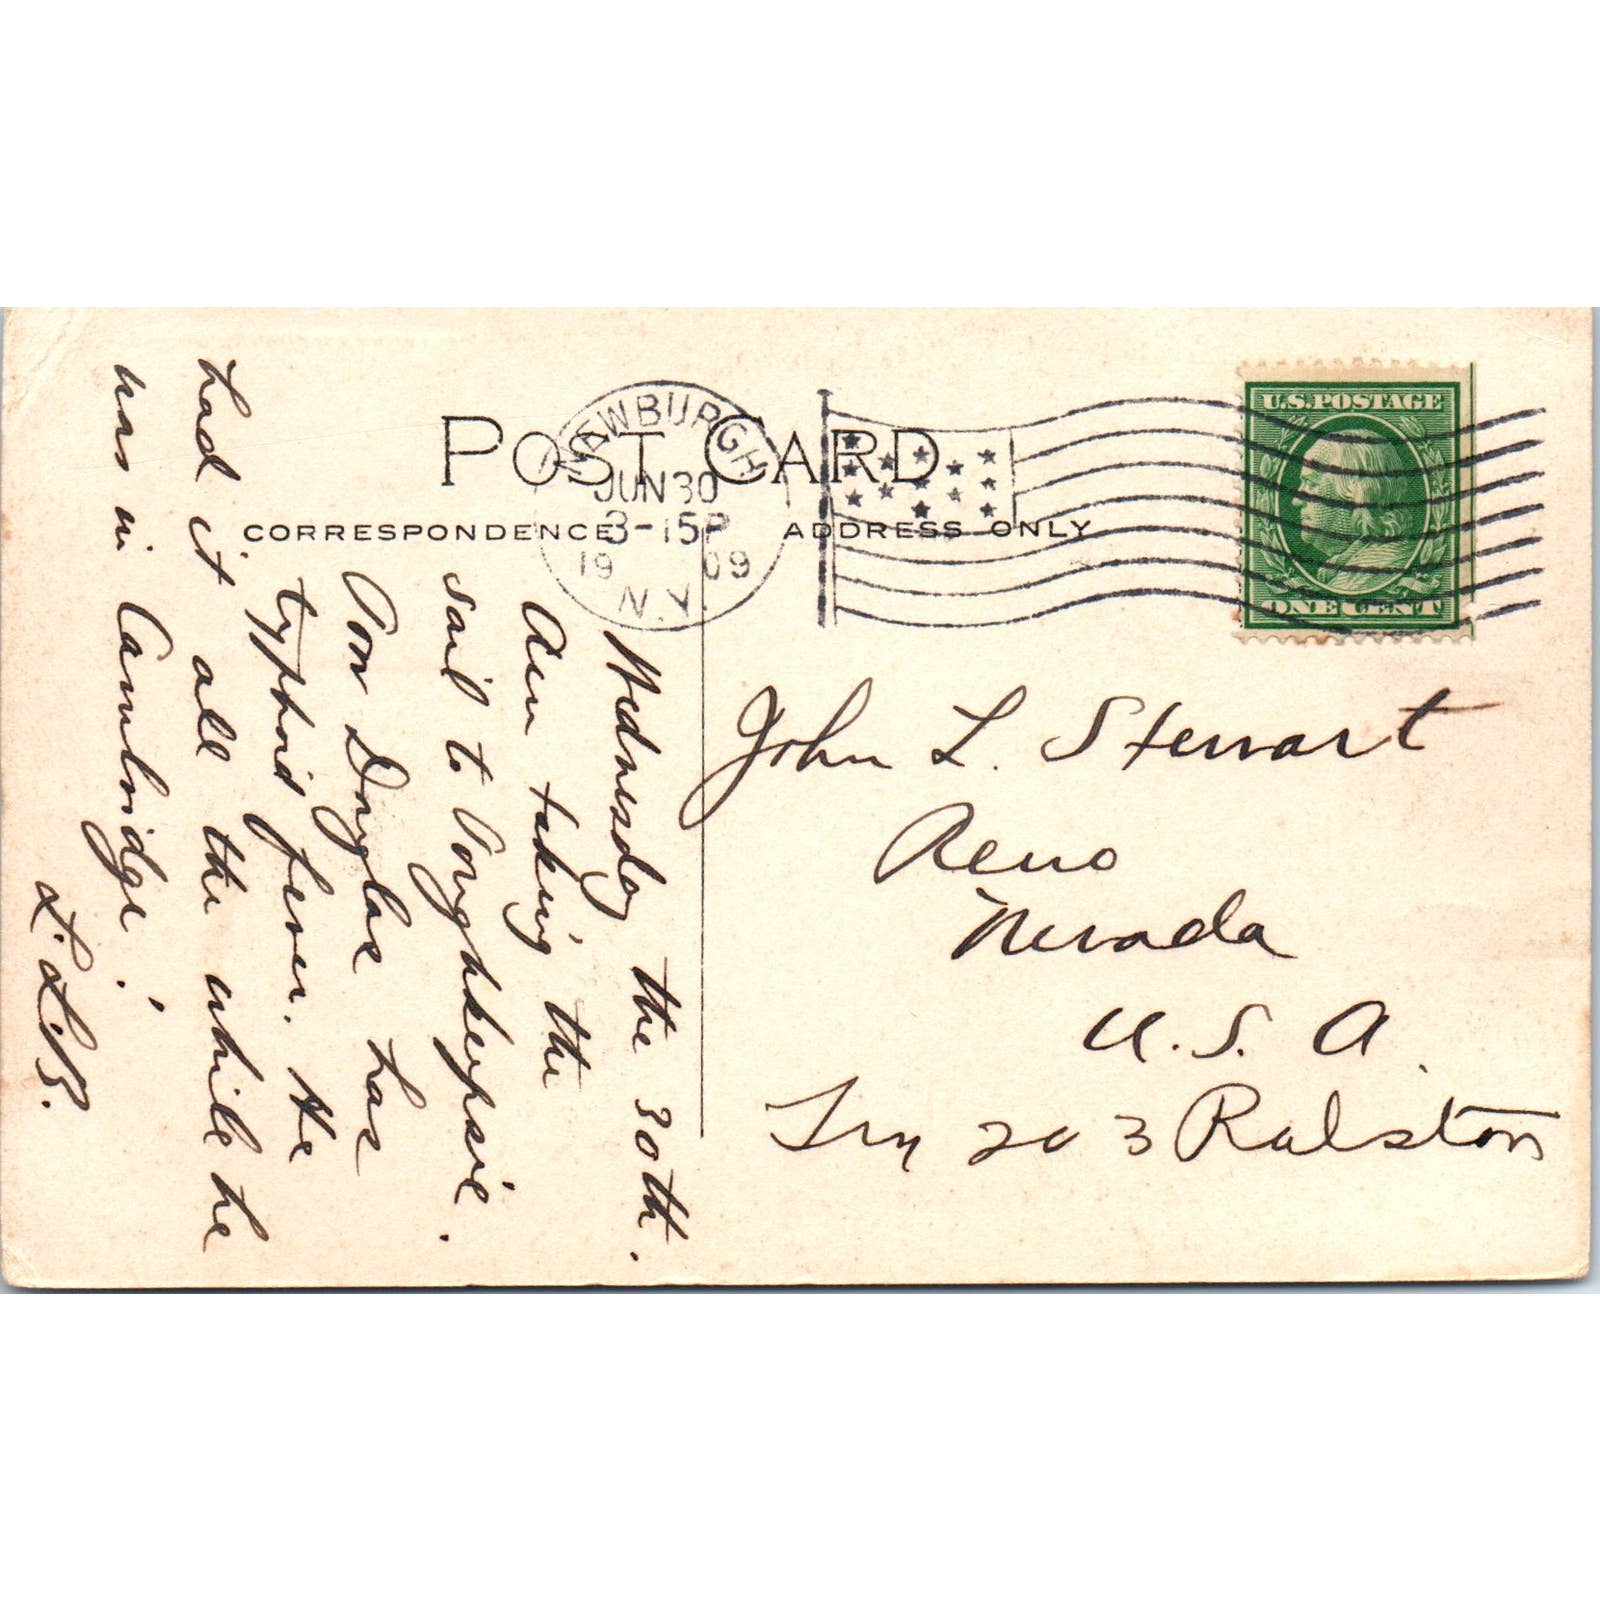 POST CARD
CORRESPONDENCE
ADDRESS ONLY
NEWBURGH
JUN 30
3-15P
1909
N.Y.
U.S. POSTAGE
ONE CENT
Wednesday the 30th.
Am taking the
sail to Poughkeepsie.
Poor Douglas has
typhoid fever. He
had it all the while he
was in Cambridge!
L.L.B.
John L. Stewart
Reno
Nevada
U.S.A.
Try 203 Ralston